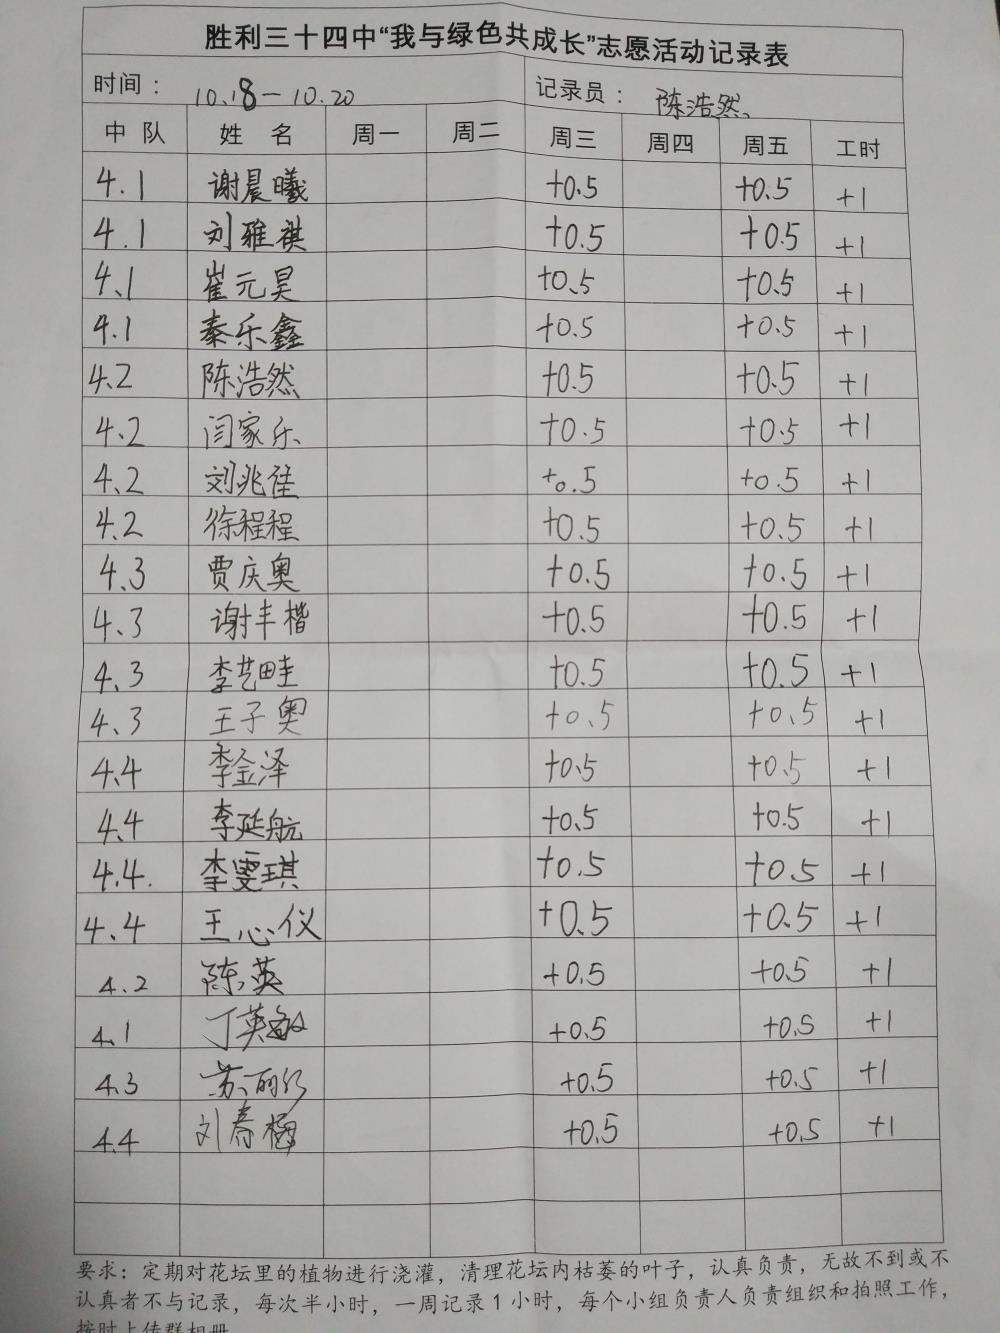 胜利三十四中“我与绿色共成长”志愿活动记录表
时间： 10.18—10.20 记录员： 陈浩然、
中 队 姓 名 周一 周二 周三 周四 周五 工时
4.1 谢晨曦 +0.5 +0.5 +1
4.1 刘雅祺 +0.5 +0.5 +1
4.1 崔元昊 +0.5 +0.5 +1
4.1 秦乐鑫 +0.5 +0.5 +1
4.2 陈浩然 +0.5 +0.5 +1
4.2 闫家乐 +0.5 +0.5 +1
4.2 刘兆佳 +0.5 +0.5 +1
4.2 徐程程 +0.5 +0.5 +1
4.3 贾庆奥 +0.5 +0.5 +1
4.3 谢丰楷 +0.5 +0.5 +1
4.3 李艺畦 +0.5 +0.5 +1
4.3 王子奥 +0.5 +0.5 +1
4.4 李金泽 +0.5 +0.5 +1
4.4 李延航 +0.5 +0.5 +1
4.4. 李雯琪 +0.5 +0.5 +1
4.4 王心仪 +0.5 +0.5 +1
4.2 陈英 +0.5 +0.5 +1
4.1 丁英敏 +0.5 +0.5 +1
4.3 苏丽 +0.5 +0.5 +1
4.4 刘春梅 +0.5 +0.5 +1
要求：定期对花坛里的植物进行浇灌，清理花坛内枯萎的叶子，认真负责，无故不到或不
认真者不与记录，每次半小时，一周记录1小时，每个小组负责人负责组织和拍照工作，
按时上传群相册